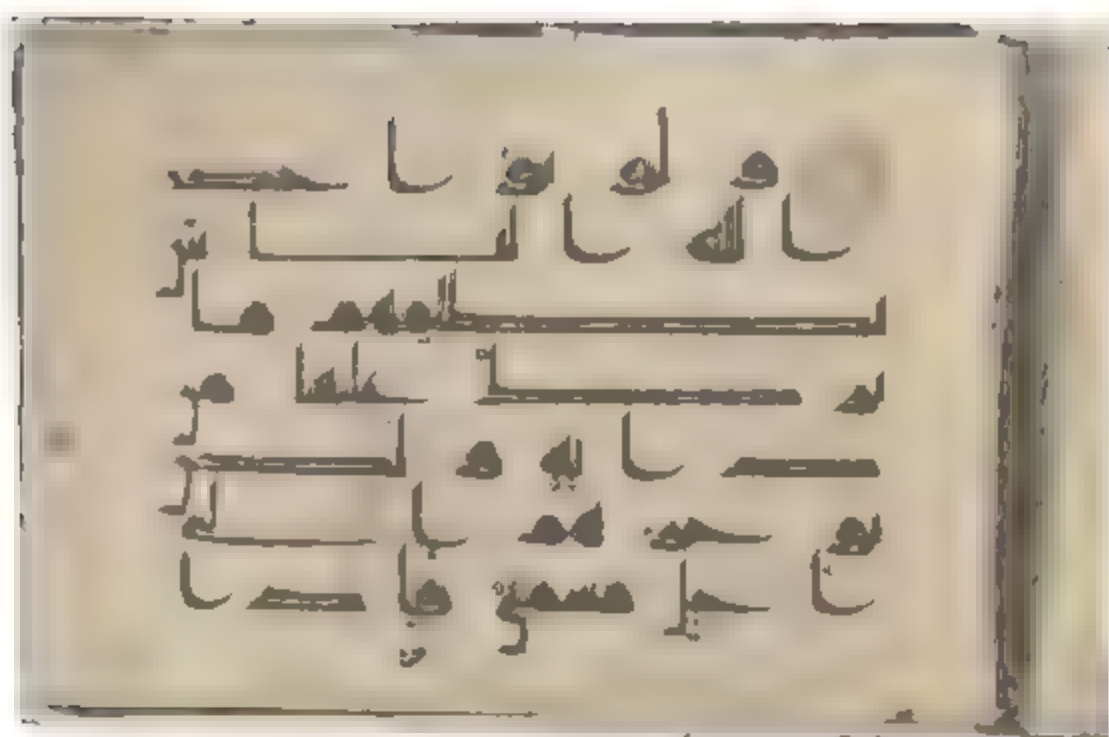 ولو يؤاخذ
الله الناس
بظلمهم ما
ترك عليها من
دابة ولكن
يؤخرهم إلى
أجل مسمى فإذا